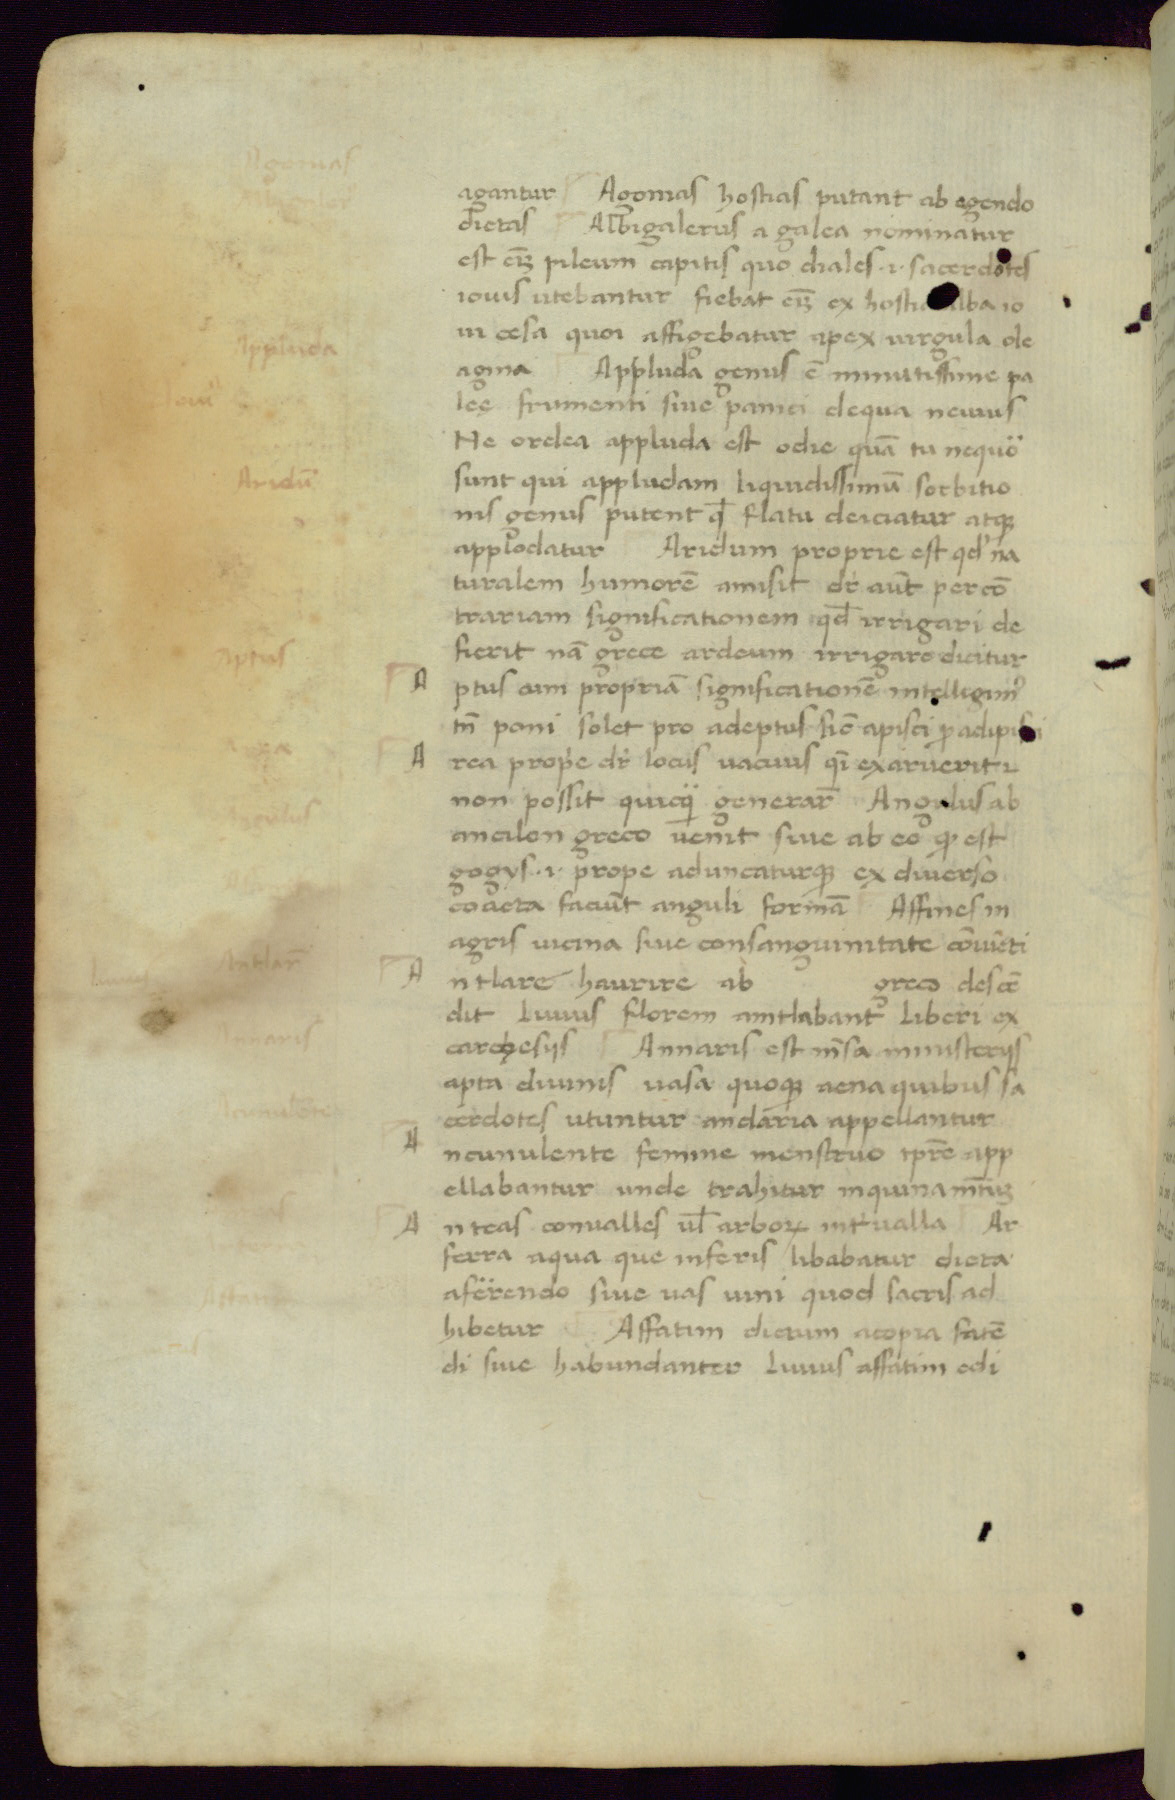 Agonias
agantur Agonias hostias putant ab egendo
dictas Albigalerus a galea nominatur
est eīꝫ pileum capitis quo diales ·i· sacerdotes
iouis utebantur fiebat eīꝫ ex hostia alba io
ui cesa quoi affigebatur apex uirgula ole
Appluda
agina Appluda genus ē minutissime pa
lee frumenti siue panici dequa neuius
Ne ordea appluda est odie quā tu nequō
Aridū
sunt qui appludam liquidissimā sorbitio
nis genus putent q̄ flatu deiciatur atqꝫ
applodatur Aridum proprie est qd' na
turalem humorē amisit dr̄ aūt per cō
trariam significationem qd̄ irrigari de
fierit nā grece ardeum irrigare dicitur
Aptus
A ptus cum propriā significationē intellegim'
tn̄ poni solet pro adeptus sic̄ apisci ꝓ adipisci
A rea prope dr̄ locus uacuus q̄ exaruerit ⁊
non possit quicq̄ generar̄ Angulus ab
Angulus
ancilon greco uenit siue ab eo qꝫ est
gogys ·i· prope aduncaturqꝫ ex diuerso
coacta faciūt anguli formā Affines in
agris uicina siue consanguinitate cōiūcti
Antlar̄
A ntlare haurire ab greco descē
dit Liuius florem amtlabant' Liberi ex
carchesijs Annaris est mēsa ministerijs
Annaris
apta diuinis uasa quoqꝫ aena quibus sa
cerdotes utuntur andaria appellantur
A ncunulente femine menstruo tpr̄e app
ellabantur unde trahitur inquinam̄tūꝫ
A nteas conualles ul̄ arboꝝ int'ualla Ar
ferra aqua que inferis libabatur dicta
aferendo siue uas uini quod sacris ad
hibetur Affatim dictum acopia fatē
di siue habundanter Liuius affatim edi